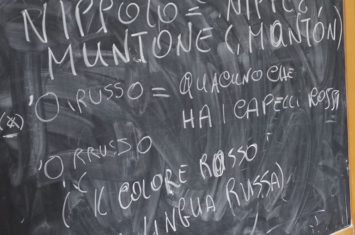 NIPPOLO =
MUNTONE (, MONTÓN)
'O RUSSO = QUACUNO CHE
(*) HA I CAPELLI ROSSI
'O RRUSSO
(IL COLORE ROSSO
LINGUA RUSSA)